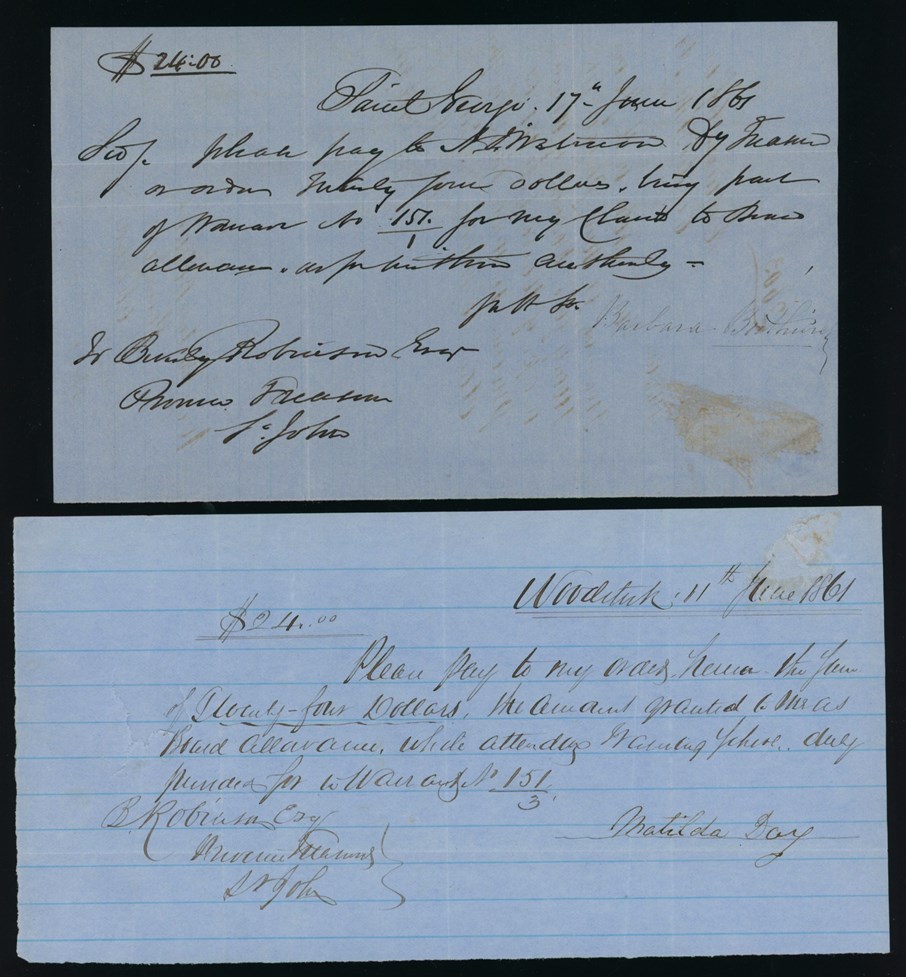 $24.00
Saint George. 17th June 1861
please pay to A. Dy Treasr
or order Twenty four Dollars, being part
of Warrant No 151/1 for my Claim to Board
allowance. as for
Barbara
To Beverley Robinson Esqr
Provnce Treasurer
St John
Woodstock, 11th June 1861
$24.00
Please Pay to my order, hereon the sum
of Twenty-four Dollars, the amount granted to me as
Board allowance, while attending Training School. duly
for in Warrant No 151/3.
B. Robinson Esq
Matilda Day
Province Treasurer
St John